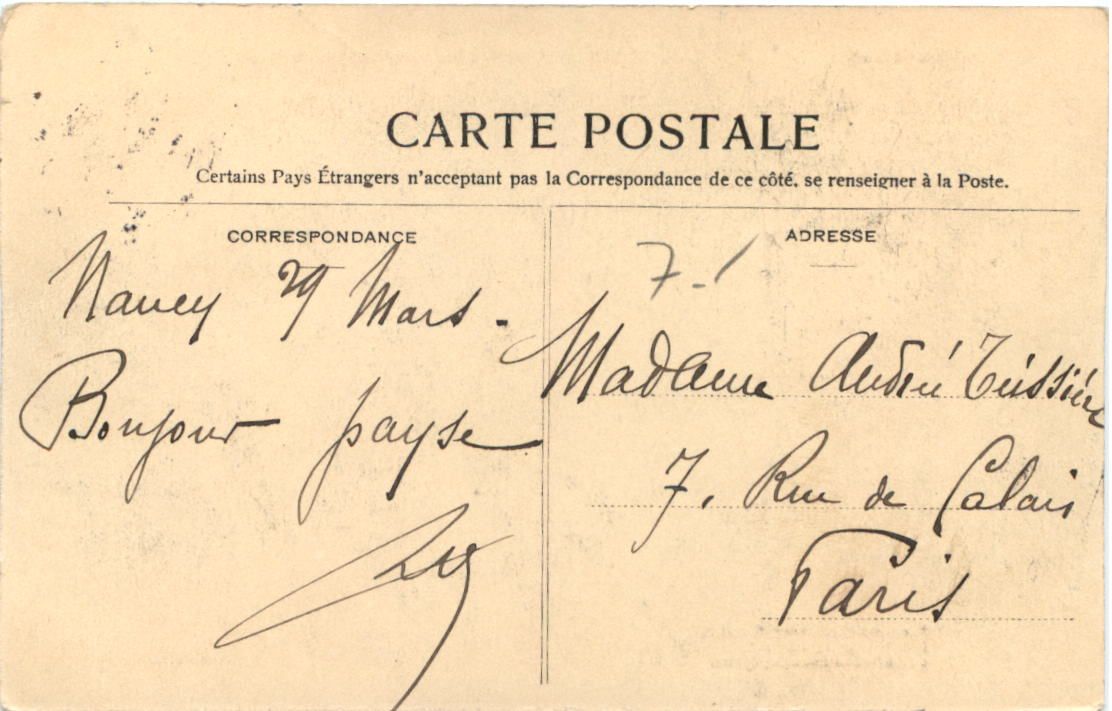 CARTE POSTALE
Certains Pays Étrangers n'acceptant pas la Correspondance de ce côté, se renseigner à la Poste.
CORRESPONDANCE
Nancy 29 Mars.
Bonjour payse
ADRESSE
7-1
Madame André Teissier
7, Rue de Calais
Paris